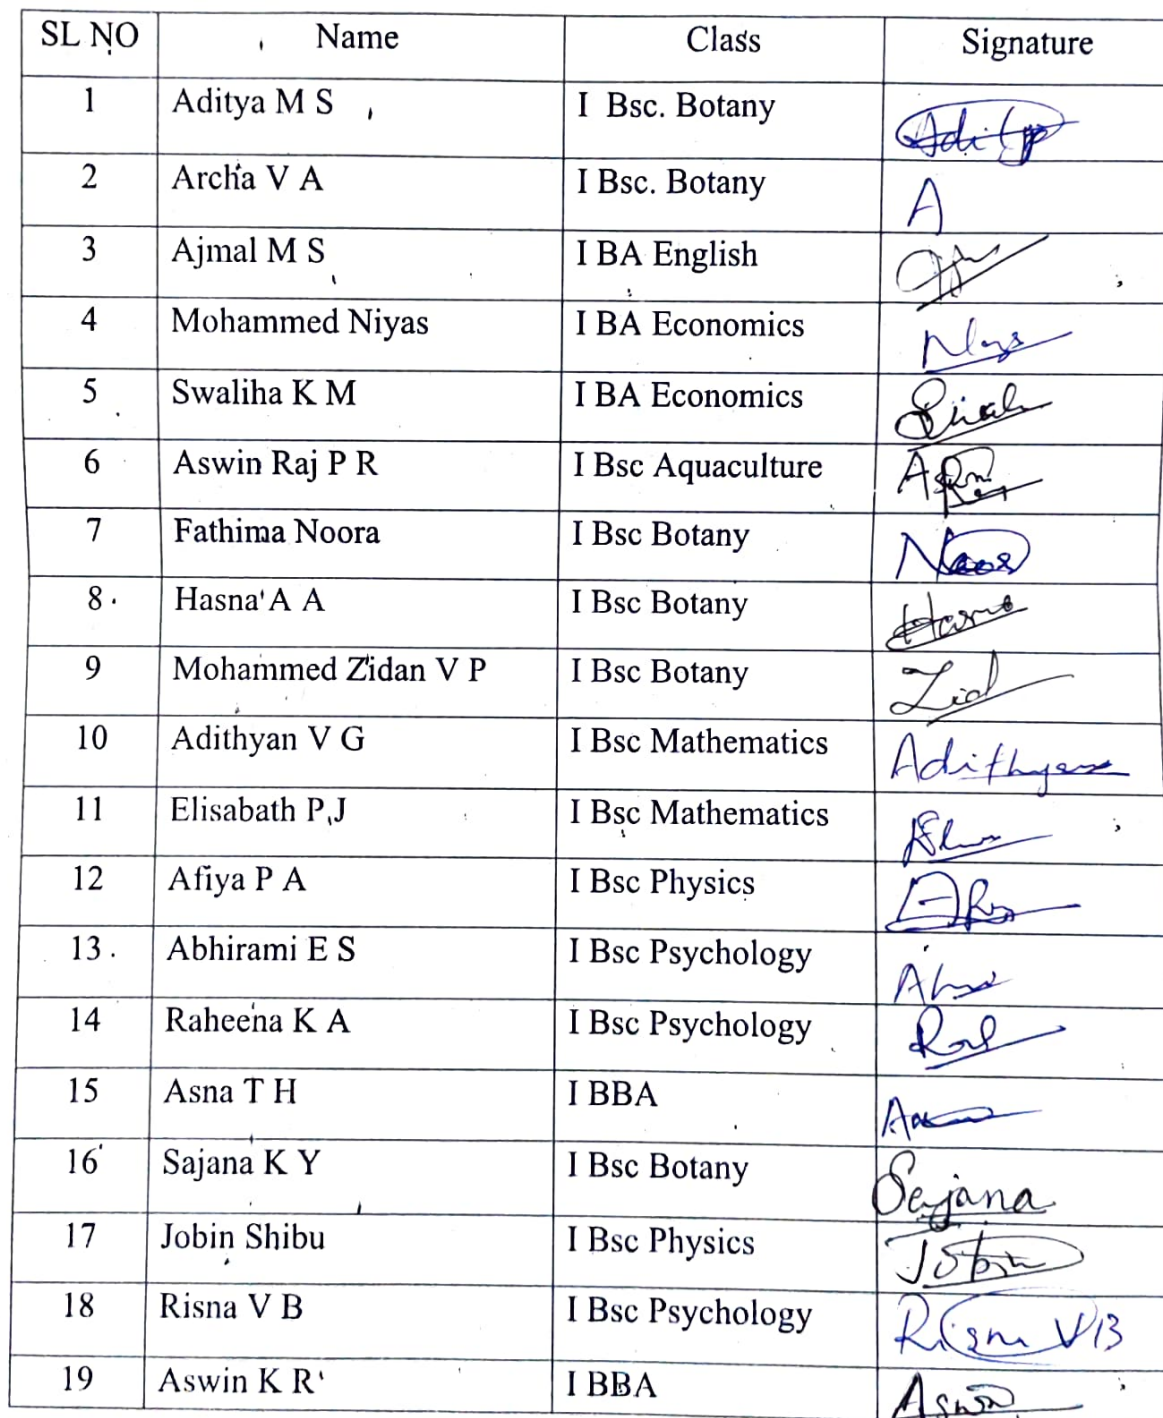 SL NO Name Class Signature
1 Aditya M S I Bsc. Botany
2 Archa V A I Bsc. Botany A
3 Ajmal M S I BA English
4 Mohammed Niyas I BA Economics
5 Swaliha K M I BA Economics
6 Aswin Raj P R I Bsc Aquaculture
7 Fathima Noora I Bsc Botany
8 Hasna A A I Bsc Botany
9 Mohammed Zidan V P I Bsc Botany
10 Adithyan V G I Bsc Mathematics Adithyan
11 Elisabath P J I Bsc Mathematics
12 Afiya P A I Bsc Physics
13 Abhirami E S I Bsc Psychology
14 Raheena K A I Bsc Psychology
15 Asna T H I BBA
16 Sajana K Y I Bsc Botany Sajana
17 Jobin Shibu I Bsc Physics Jobin
18 Risna V B I Bsc Psychology Risna V B
19 Aswin K R I BBA Aswin